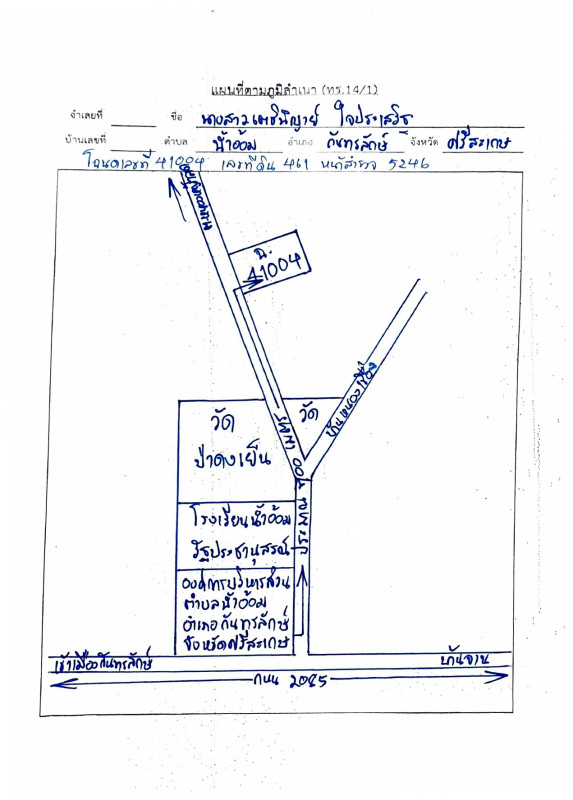 แผนที่ตามภูมิลำเนา (ทร.14/1)
จำเลยที่ ชื่อ นางสาว ใจประเสริฐ
บ้านเลขที่ ตำบล น้ำอ้อม อำเภอ กันทรลักษ์ จังหวัด ศรีสะเกษ
โฉนดเลขที่ 41004 เลขที่ดิน 461 หน้าสำรวจ 5246
ฉ.
41004
วัด
ป่าดงเย็น
วัด
บ้านหนองเขื่อง
ประมาณ 700 เมตร
โรงเรียนน้ำอ้อม
รัฐประชานุสรณ์
องค์การบริหารส่วน
ตำบลน้ำอ้อม
อำเภอกันทรลักษ์
จังหวัดศรีสะเกษ
เข้าเมืองกันทรลักษ์ บ้านจาน
ถนน 2085